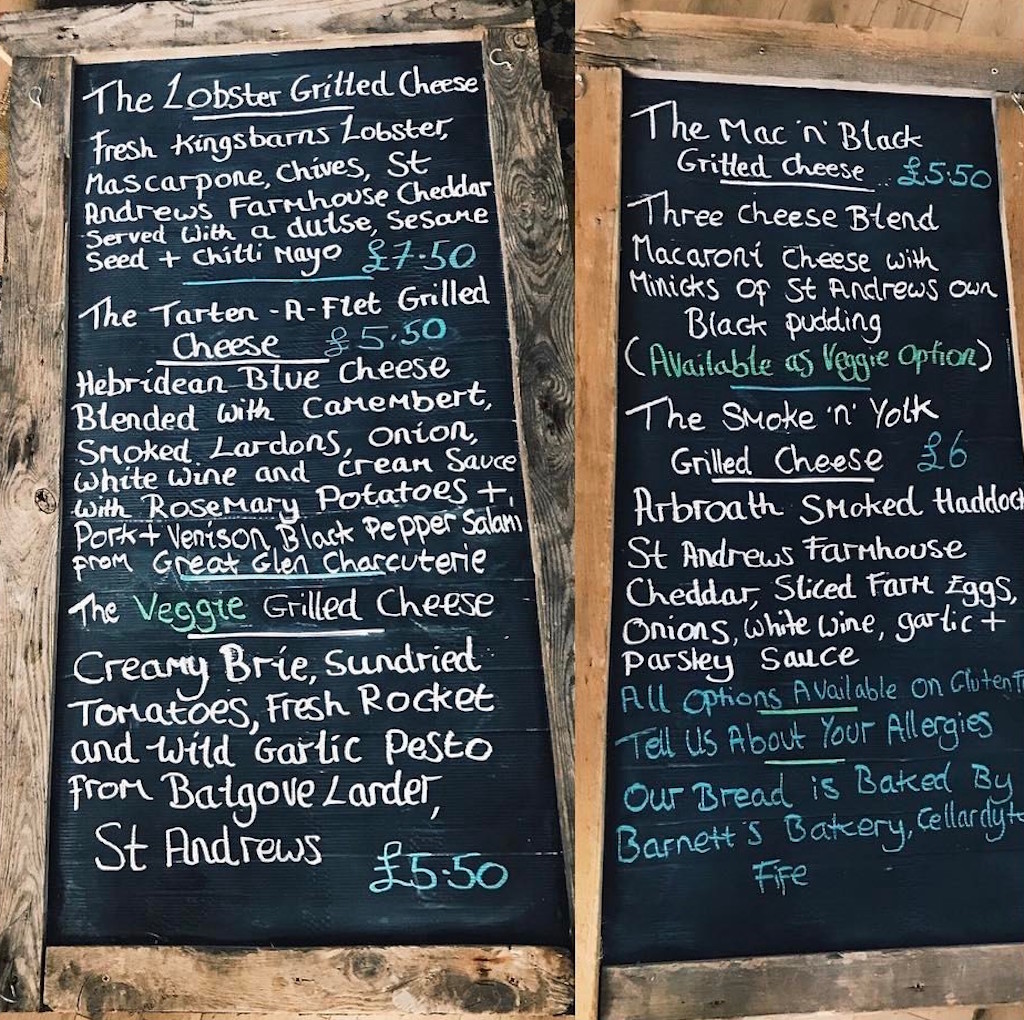 The Lobster Grilled Cheese
Fresh Kingsbarns Lobster,
Mascarpone, Chives, St
Andrews Farmhouse Cheddar
Served with a dulse, Sesame
Seed + Chilli Mayo £7.50
The Tarten-A-Flet Grilled
Cheese £5.50
Hebridean Blue Cheese
Blended with Camembert,
Smoked Lardons, Onion,
White Wine and Cream Sauce
with Rosemary Potatoes +
Pork + Venison Black Pepper Salami
from Great Glen Charcuterie
The Veggie Grilled Cheese
Creamy Brie, Sundried
Tomatoes, Fresh Rocket
and Wild Garlic Pesto
from Balgove Larder,
St Andrews
£5.50
The Mac 'n' Black
Grilled Cheese £5.50
Three Cheese Blend
Macaroni Cheese with
Minicks of St Andrews own
Black pudding
(Available as Veggie Option)
The Smoke 'n' Yolk
Grilled Cheese £6
Arbroath Smoked Haddock
St Andrews Farmhouse
Cheddar, Sliced Farm Eggs,
Onions, White Wine, garlic +
Parsley Sauce
All Options Available on Gluten F
Tell Us About Your Allergies
Our Bread is Baked By
Barnett's Bakery, Cellardyke
Fife